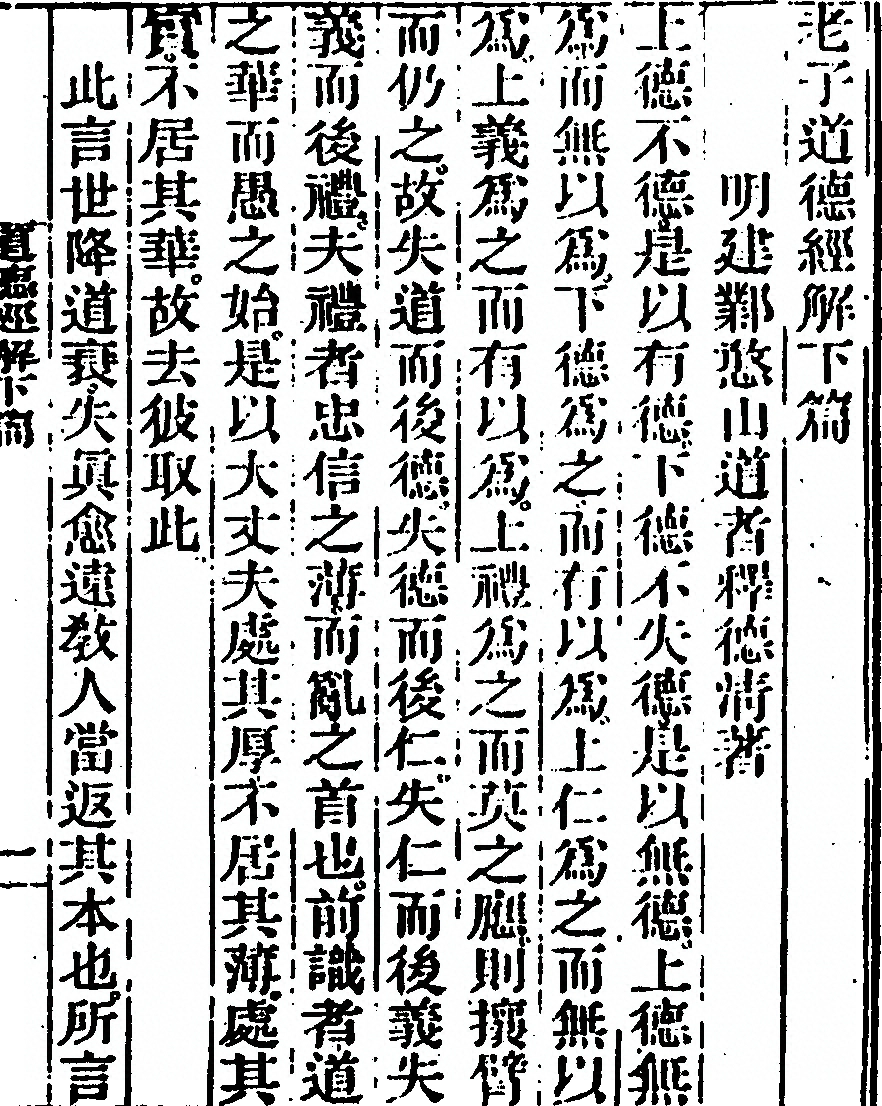 老子道德經解下篇
明建鄴憨山道者釋德清著
上德不德是以有德下德不失德是以無德上德無
為而無以為下德為之而有以為上仁為之而無以
為上義為之而有以為上禮為之而莫之應則攘臂
而仍之故失道而後德失德而後仁失仁而後義失
義而後禮夫禮者忠信之薄而亂之首也前識者道
之華而愚之始是以大丈夫處其厚不居其薄處其
實不居其華故去彼取此
此言世降道衰失眞愈遠教人當返其本也所言
道德經解下篇
一